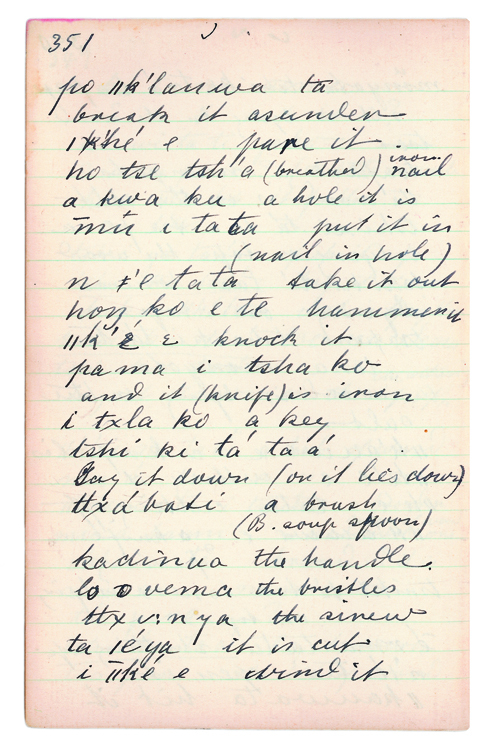 351
po ǁk'lanwa ta
break it asunder
ǀk'hé e pare it.
ho tse tsh'a (breathed) iron nail
a kwa ku a hole it is
mū ι tata put it in
(nail in hole)
n ǂ'e tata take it out
hoŋ ko e te hammer it
ǁk'έ ε knock it
pama i tsha ko
and it (knife) is iron
i txla ko a key
tshi ki tá ta á
Lay it down (or it lies down)
ttxá bati a brush
(B. soup spoon)
kadinua the handle.
lo o vema the bristles
ttx v:n ya the sinew
ta ǀéya it is cut
i ǁké e wind it